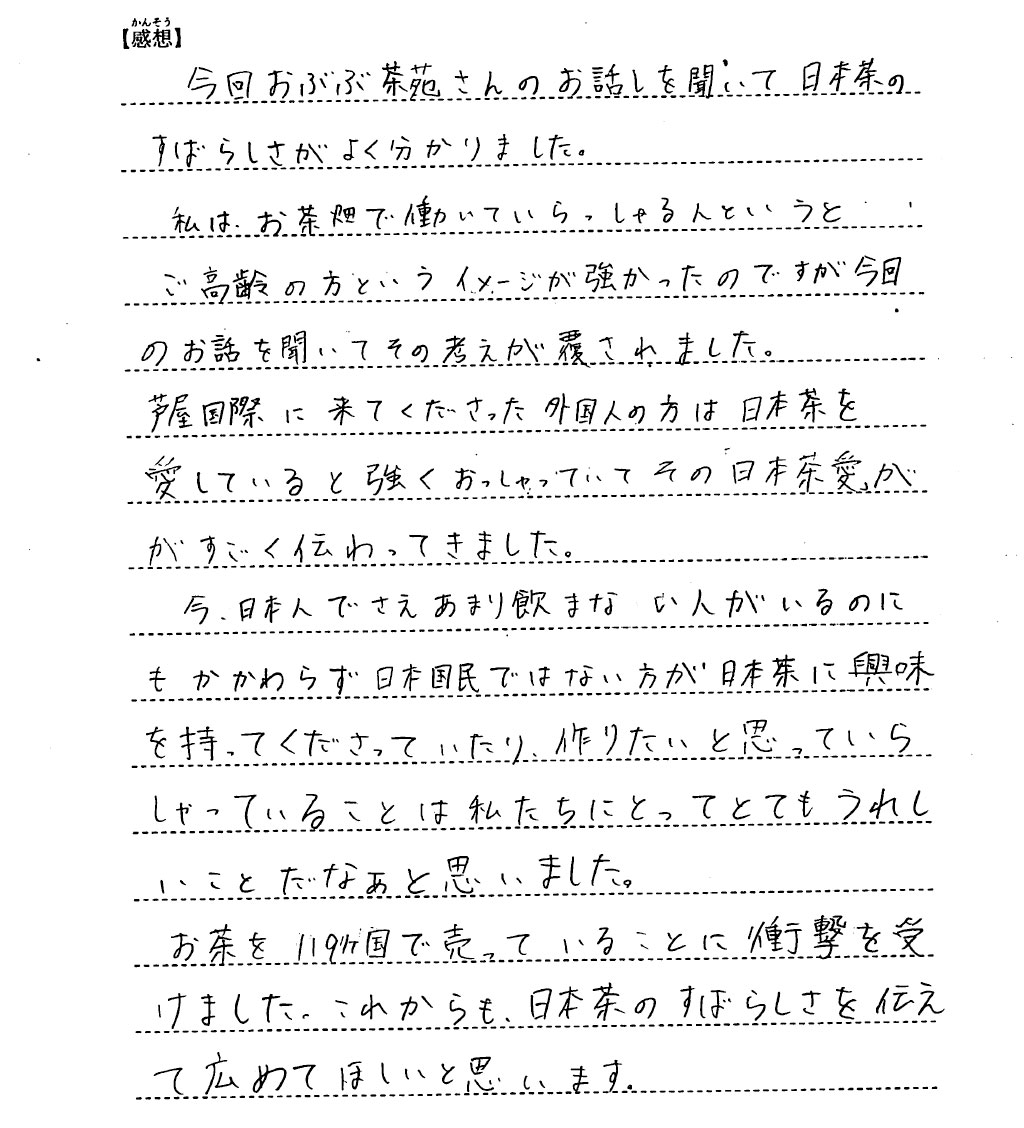 かんそう
【感想】
今回おぶぶ茶苑さんのお話しを聞いて日本茶の
すばらしさがよく分かりました。
私は、お茶畑で働いていらっしゃる人というと
ご高齢の方というイメージが強かったのですが今回
のお話を聞いてその考えが覆されました。
芦屋国際に来てくださった外国人の方は日本茶を
愛していると強くおっしゃっていてその「日本茶愛」が
がすごく伝わってきました。
今、日本人でさえあまり飲まない人がいるのに
もかかわらず日本国民ではない方が日本茶に興味
を持ってくださっていたり、作りたいと思っていら
しゃっていることは私たちにとってとてもうれし
いことだなぁと思いました。
お茶を119ヶ国で売っていることに衝撃を受
けました。これからも、日本茶のすばらしさを伝え
て広めてほしいと思います。